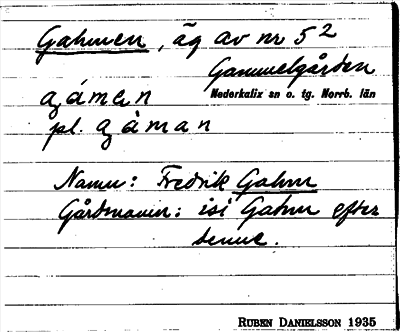 Gahmen, äg av nr 52
Gammelgården
Nederkalix sn o. tg. Norrb. län
gámɛn
pl. gàman
Namn: Fredrik Gahm
Gårdmannen: isi Gahm efter
denne.
RUBEN DANIELSSON 1935